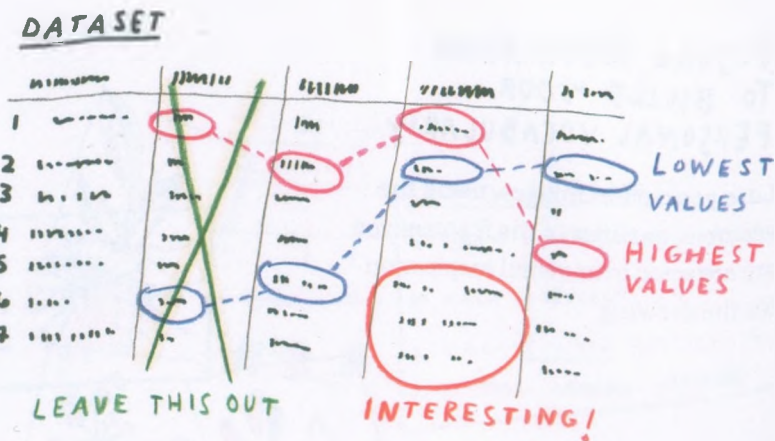 DATASET
1
2
3
4
5
6
7
LOWEST
VALUES
HIGHEST
VALUES
LEAVE THIS OUT
INTERESTING!